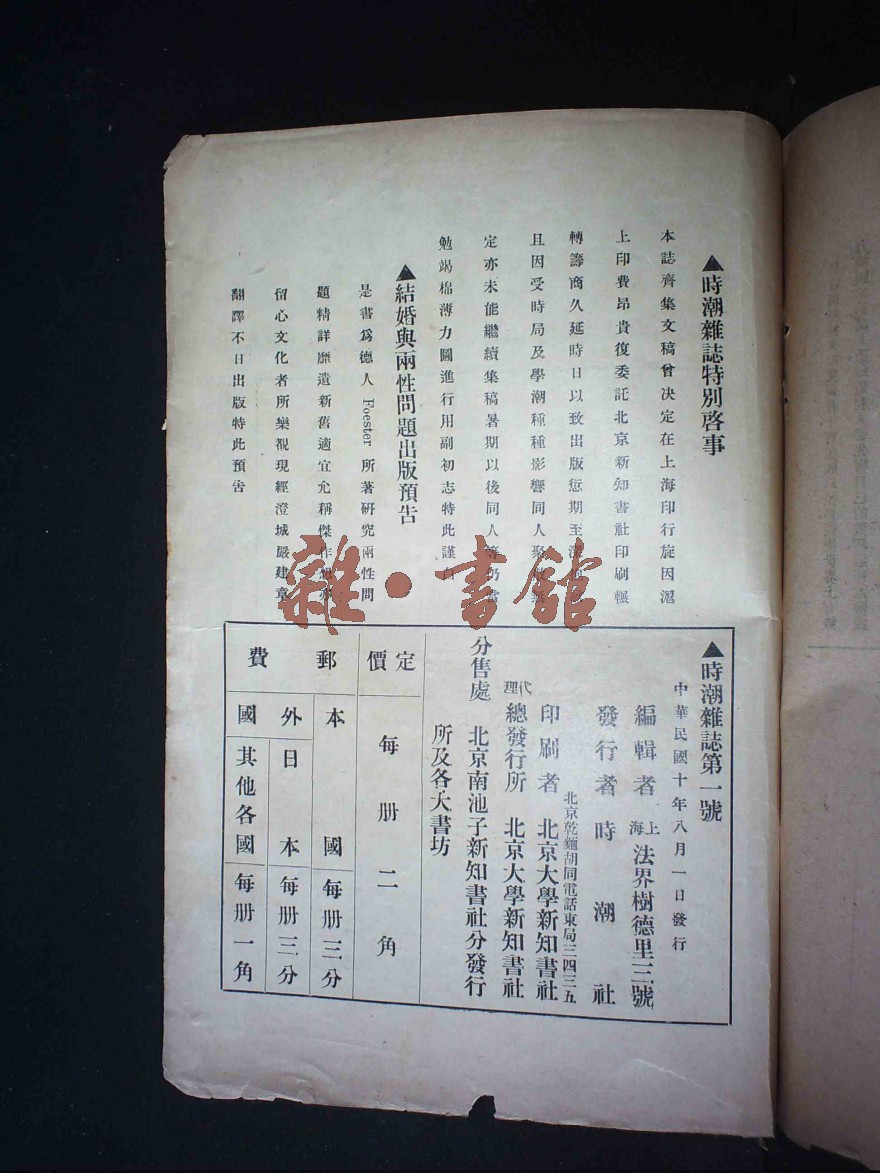 ▲時潮雜誌特別啓事
本誌齊集文稿曾決定在上海印行旋因滬
上印費昂貴復委託北京新知書社印刷輾
轉籌商久延時日以致出版愆期至
且因受時局及學潮種種影響同人聚
定亦未能繼續集稿暑期以後同人等仍當
勉竭棉薄力圖進行用副初志特此謹
▲結婚與兩性問題出版預告
是書爲德人 Foester 所著研究兩性問
題精詳歷遣新舊適宜允稱傑作想亦
留心文化者所樂視現經澄城嚴建章
翻譯不日出版特此預告
雜·書館
▲時潮雜誌第一號
中華民國十年八月一日發行
編輯者 上海法界樹德里三號
發行者 時潮社
北京乾麵胡同電話東局三四三五
印刷者 北京大學新知書社
代理總發行所 北京大學新知書社
分售處 北京南池子新知書社分發行
所及各大書坊
定價 每册二角
郵費
本國 每册三分
外國
日本 每册三分
其他各國 每册一角